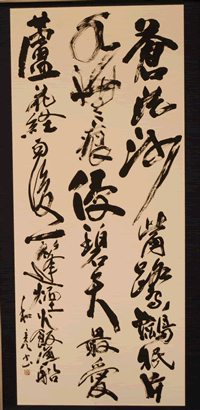 蒼茫沙嘴鷺鷥眠片
水無痕浸碧天最愛
蘆花經雨後一篷煙火飯漁船